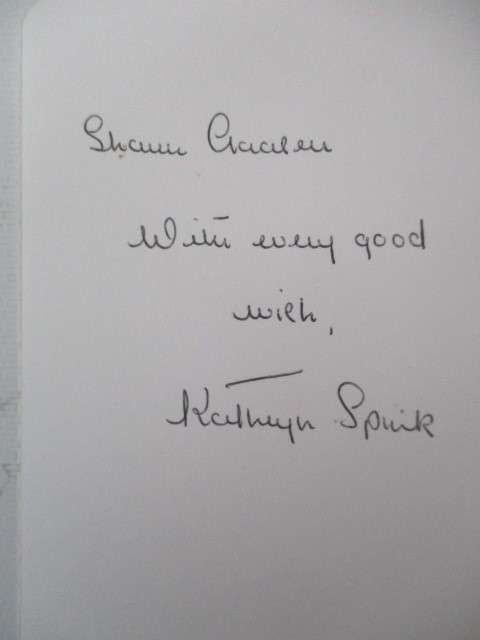 Shaun
With every good
wish,
Kathryn Spink